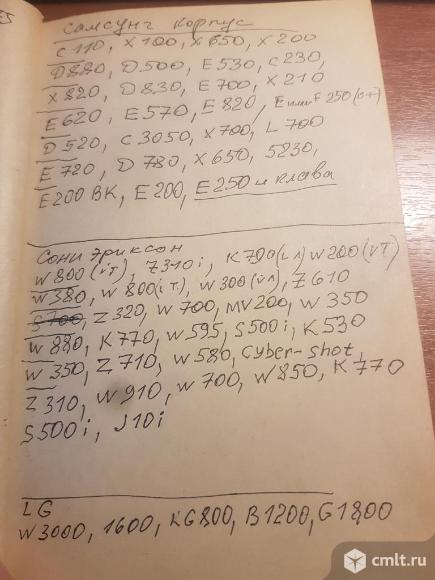 Самсунг корпус
C 110, X 100, X 650, X 200
D 880, D 500, E 530, C 230,
X 820, D 830, E 700, X 210
E 620, E 570, E 820, E или F 250 (о+)
D 520, C 3050, X 700, L 700
E 720, D 780, X 650, 5230,
E 200 BK, E 200, E 250 и клава
Сони Эриксон
W 800 (i т), Z 310 i, K 790 (i л) W 200 (i т)
W 380, W 800 (i т), W 300 (i л), Z 610
S 700, Z 320, W 700, MV 200, W 350
W 880, K 770, W 595, S 500 i, K 530
W 350, Z 710, W 580, Cyber-shot,
Z 310, W 910, W 700, W 850, K 770
S 500 i, J 10 i
LG
W 3000, 1600, KG 800, B 1200, G 1800
cmlt.ru